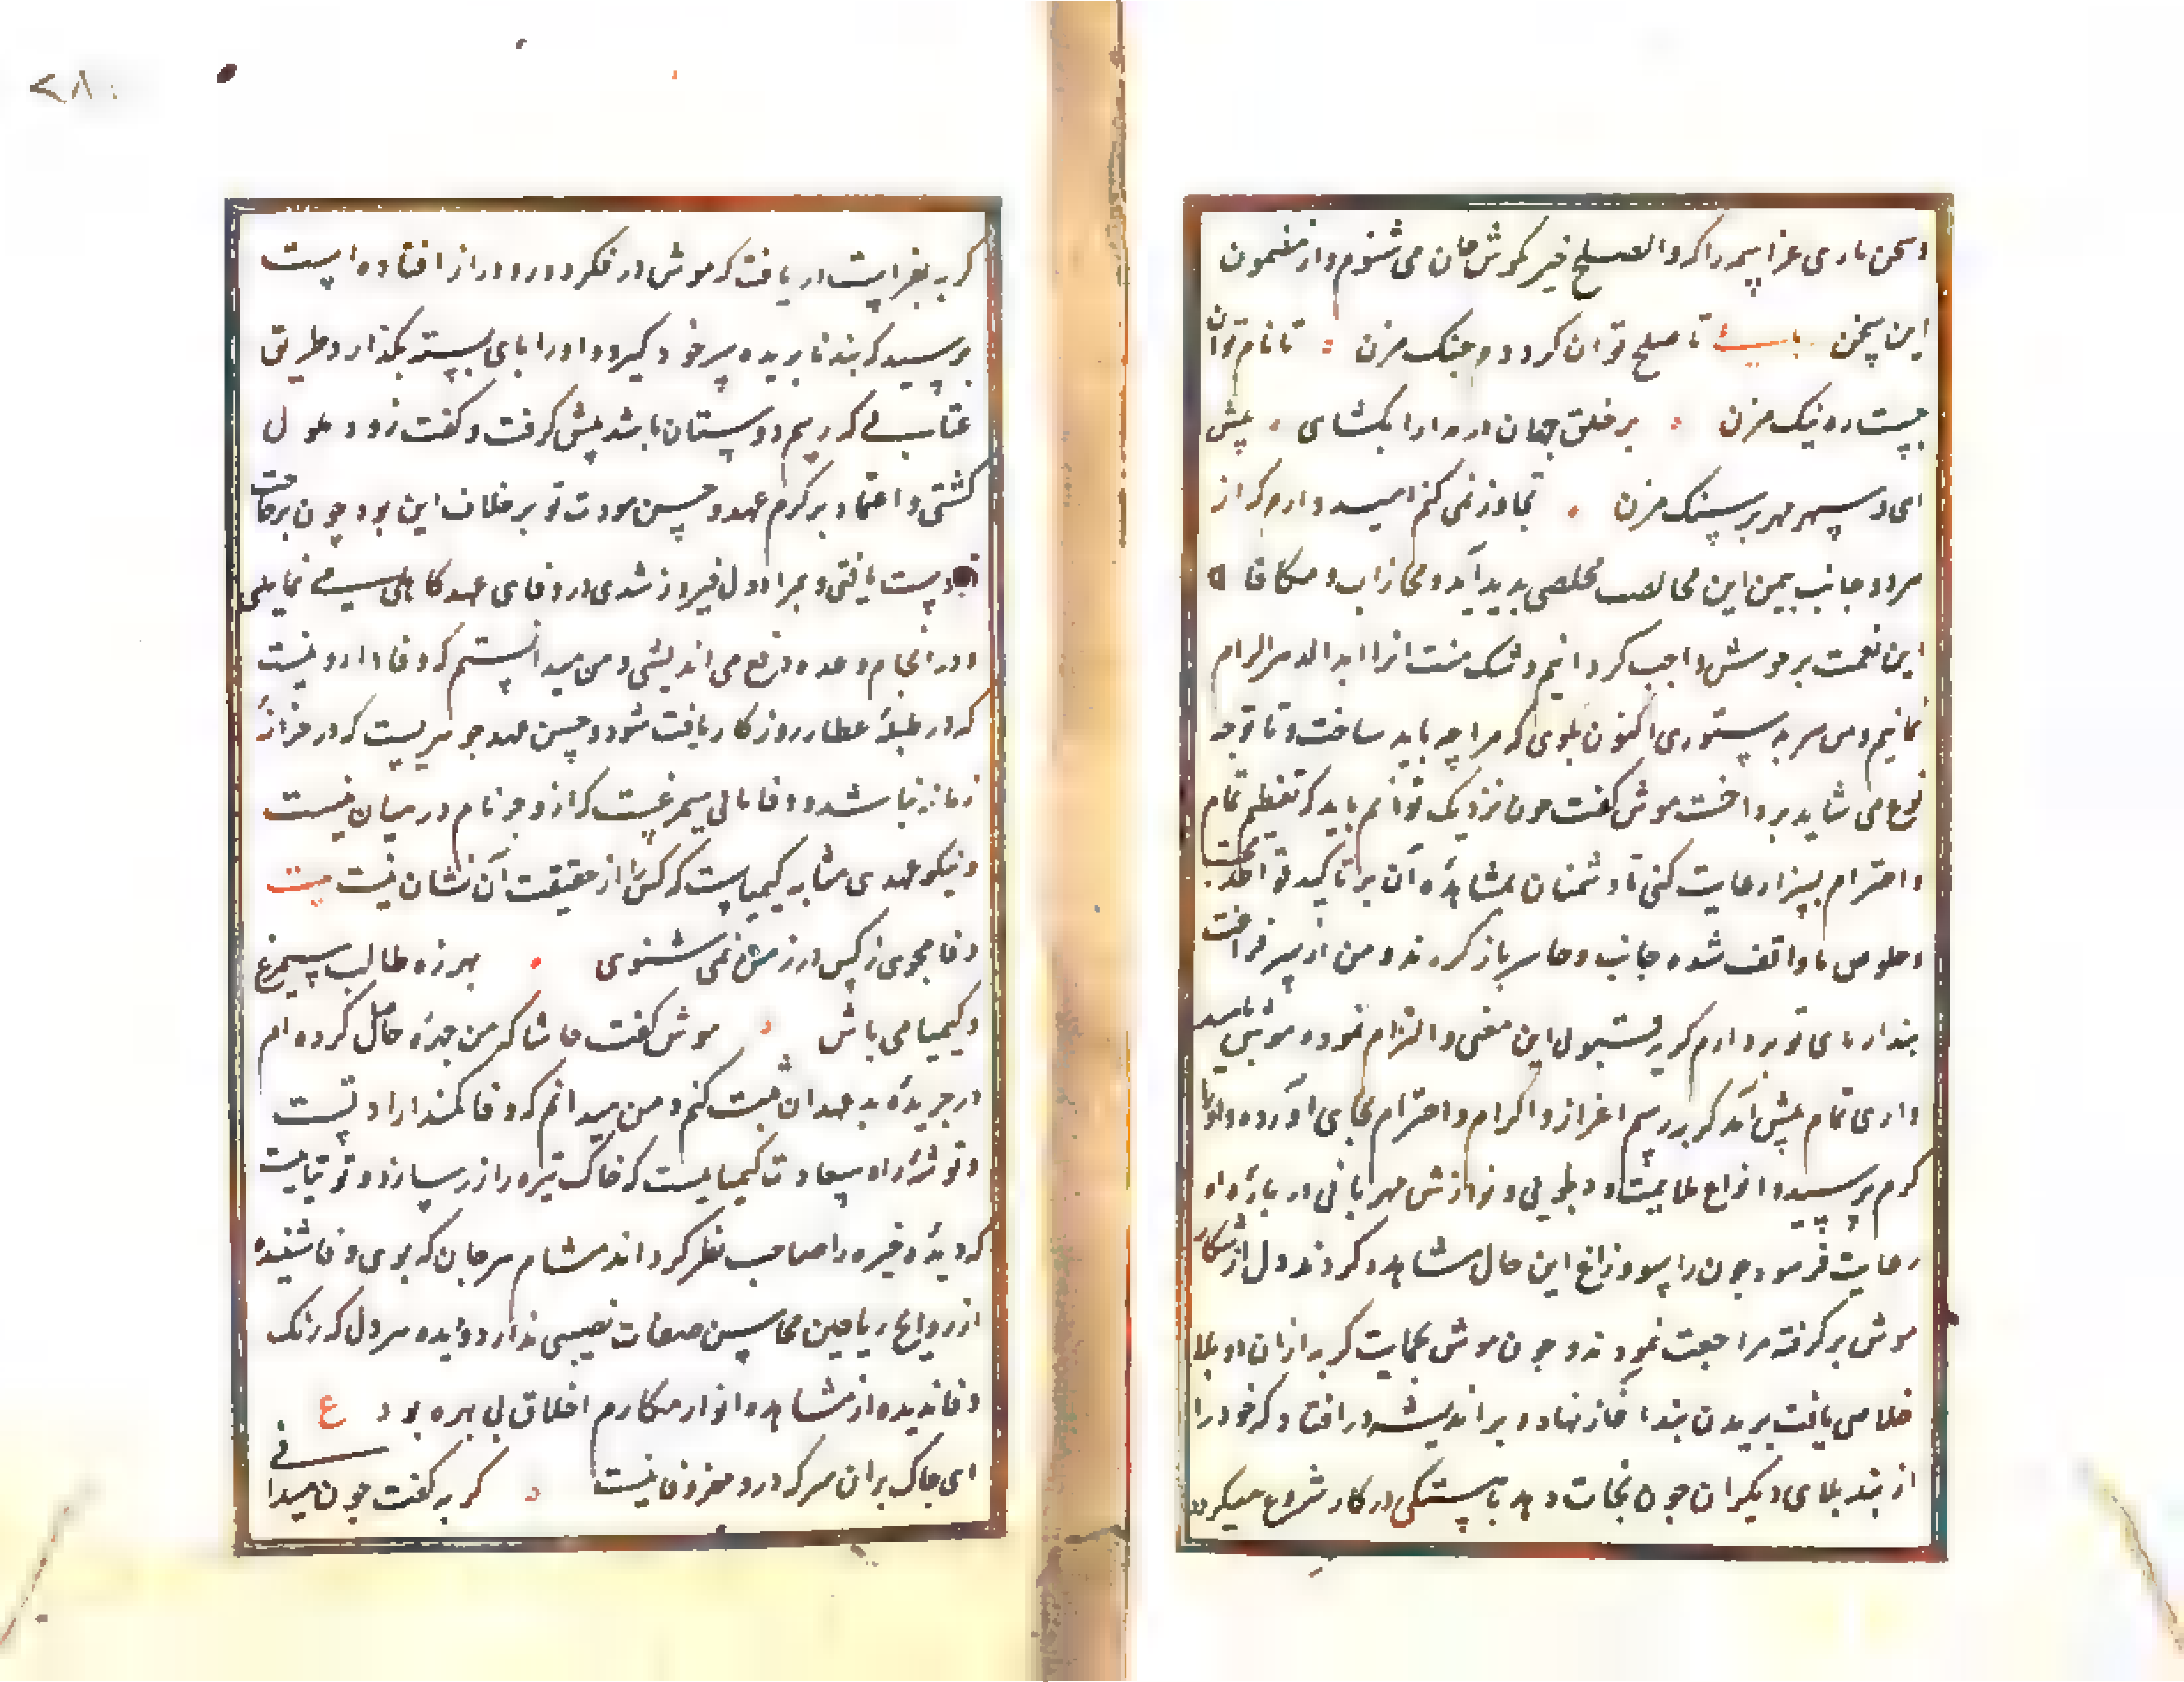 و سخن باری عز اسمه را که والصلح خیر بگوش جان می شنوم و از مضمون
این سخن بیت تا صلح توان کرد در جنک مزن تا نام توان
جست ره ننک مزن بر خلق جهان در مدارا بکشای پیش
ای و سپهر بر سنک مزن تجاوز نمی کنم امید دارم که از
هر دو جانب بیمن این مخالصت مخلصی پدید آید و مجازات و مکافات
این نعمت بر خویش واجب کردانیم و شکر منت انرا ابد الدهر التزام
نمائیم و من هم به دستوری اکنون بکوی که مرا چه باید ساخت و تا توجه
نوع می شاید پرداخت موش کفت چون نزدیک تو آیم باید که تعظیم تمام
و احترام بسزا رعایت کنی تا دشمنان بمشاهده آن بر تاکید قواعد محبت
و خلوص ما واقف شده خایب و خاسر باز کردند و من از سر فراغت
بند از پای تو بردارم کربه قبول این معنی را التزام نمود و موش بامید
واری تمام پیش آمد کربه رسم اعزاز و اکرام و احترام بجای آورده او را
کرم پرسید و انواع ملایمت و دلجویی و نوازش مهربانی در باره او
رعایت فرمود چون راسو و زاغ این حال مشاهده کردند دل از شکار
موش برکرفته مراجعت نمودند و چون موش بحمایت کربه از ان دو بلا
خلاصی یافت بریدن بند آغاز نهاد و در اندیشه در افتاد که خود را
از بند بلای دیکر ان چون نجات دهد باهستکی در کار شروع میکرد
کربه بفراست در یافت که موش در فکر دور و دراز افتاده است
بترسید که بند نابریده سر خود کیرد و او را پای بسته بکذارد طریق
عتابی که رسم دوستان باشد پیش کرفت و کفت زود ملول
کشتی و اعتماد بر کرم عهد و حسن مودت تو بر خلاف این بود چون بر حاجت
خود دست یافتی و بمراد دل فیروز شدی در وفای عهد کاهلی می نمایی
و در انجام وعده دفع می اندیشی و من میدانستم که وفا دارویی نیست
که در طبله عطار روزکار یافت شود و حسن عهد جوهریست که در خزانه
زمانه نباشد و وفا مانند سیمرغیست که از و جز نام در میان نیست
و نیکو عهدی مشابه کیمیاست که کس را از حقیقت آن نشان نیست بیت
وفا مجوی ز کس ور ز من نمی شنوی بهرزه طالب سیمرغ
و کیمیا می باش موش کفت حاشا که من چهره حال کرده ام
در جریده بد عهدان ثبت کنم و من میدانم که وفا کمند ارادتست
و توشه راه سعادت کیمیایست که خاک تیره را زر سازد و توتیاییست
که دیده خیره را صاحب نظر کرداند مشام هر جان که بوی وفا نشنیده
از روایح ریاحین محاسن صفات نصیبی ندارد و دیده هر دل که رنک
وفا ندیده از مشاهده انوار مکارم اخلاق بی بهره بود ع
ای خاک بر ان سر که در و مغز وفا نیست کربه کفت چون میدانی
۲۸۰